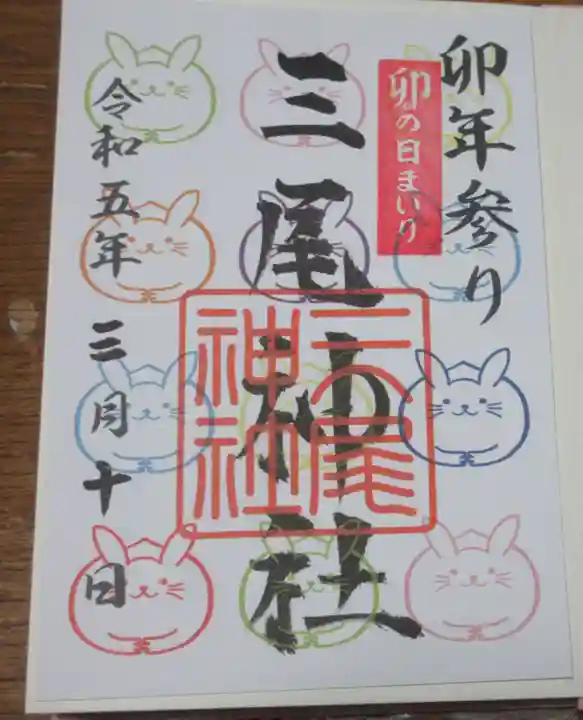 卯年参り
卯の日まいり
三尾神社
三尾神社
令和五年三月十日